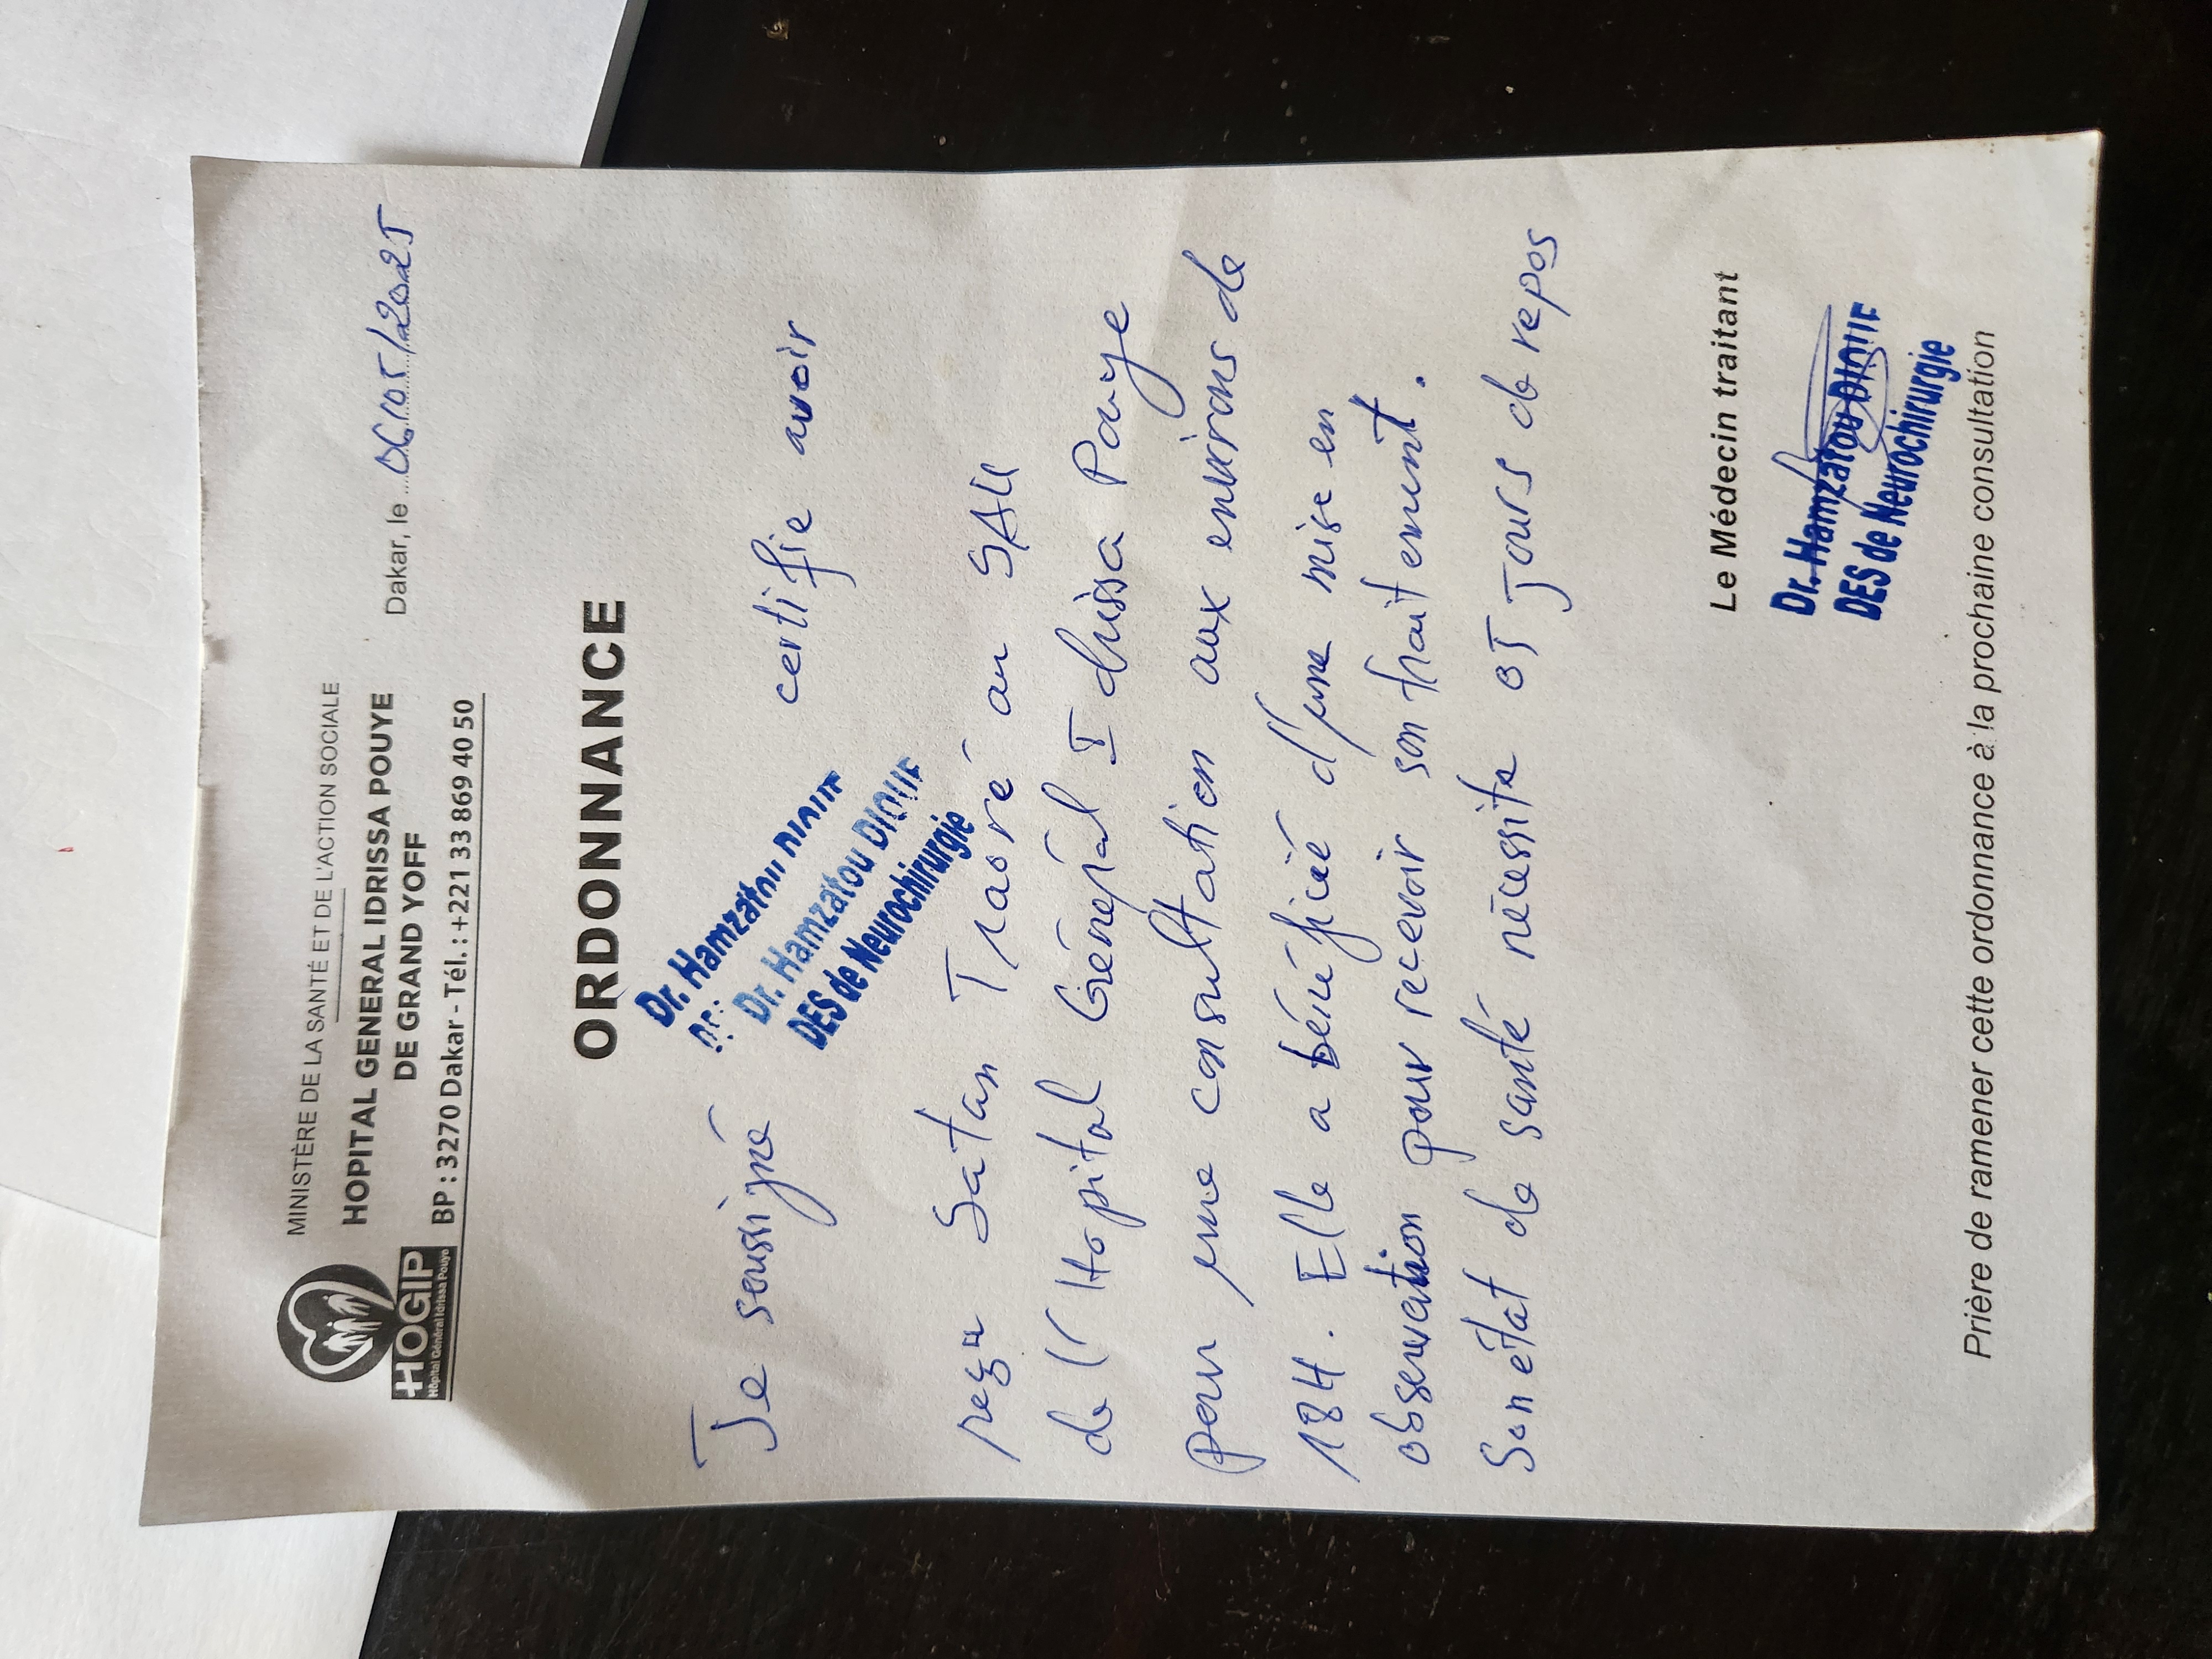 MINISTÈRE DE LA SANTÉ ET DE L'ACTION SOCIALE
HOPITAL GENERAL IDRISSA POUYE
DE GRAND YOFF
BP : 3270 Dakar - Tél. : +221 33 869 40 50
HOGIP
Hôpital Général Idrissa Pouye
Dakar, le 06/05/2025
ORDONNANCE
Dr. Hamzatou DIOUF
Dr. Hamzatou DIOUF
DES de Neurochirurgie
Je soussigné certifie avoir
reçu Satan Traoré au SAU
de l'Hopital Général Idrissa Pouye
pour une consultation aux environs de
18H. Elle a bénéficié d'une mise en
observation pour recevoir son traitement.
Son état de santé nécessite 05 Jours de repos
Le Médecin traitant
Dr. Hamzatou DIOUF
DES de Neurochirurgie
Prière de ramener cette ordonnance à la prochaine consultation